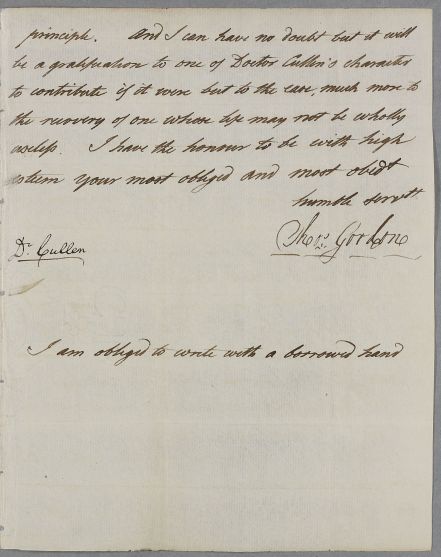 principle. And I can have no doubt but it will
be a gratification to one of Doctor Cullen's character
to contribute if it were but to the ease, much more to
the recovery of one whose life may not be wholly
useless. I have the honour to be with high
esteem your most obliged and most obedt
humble servtt
Thos. Gordon
Dr. Cullen
I am obliged to write with a borrowed hand